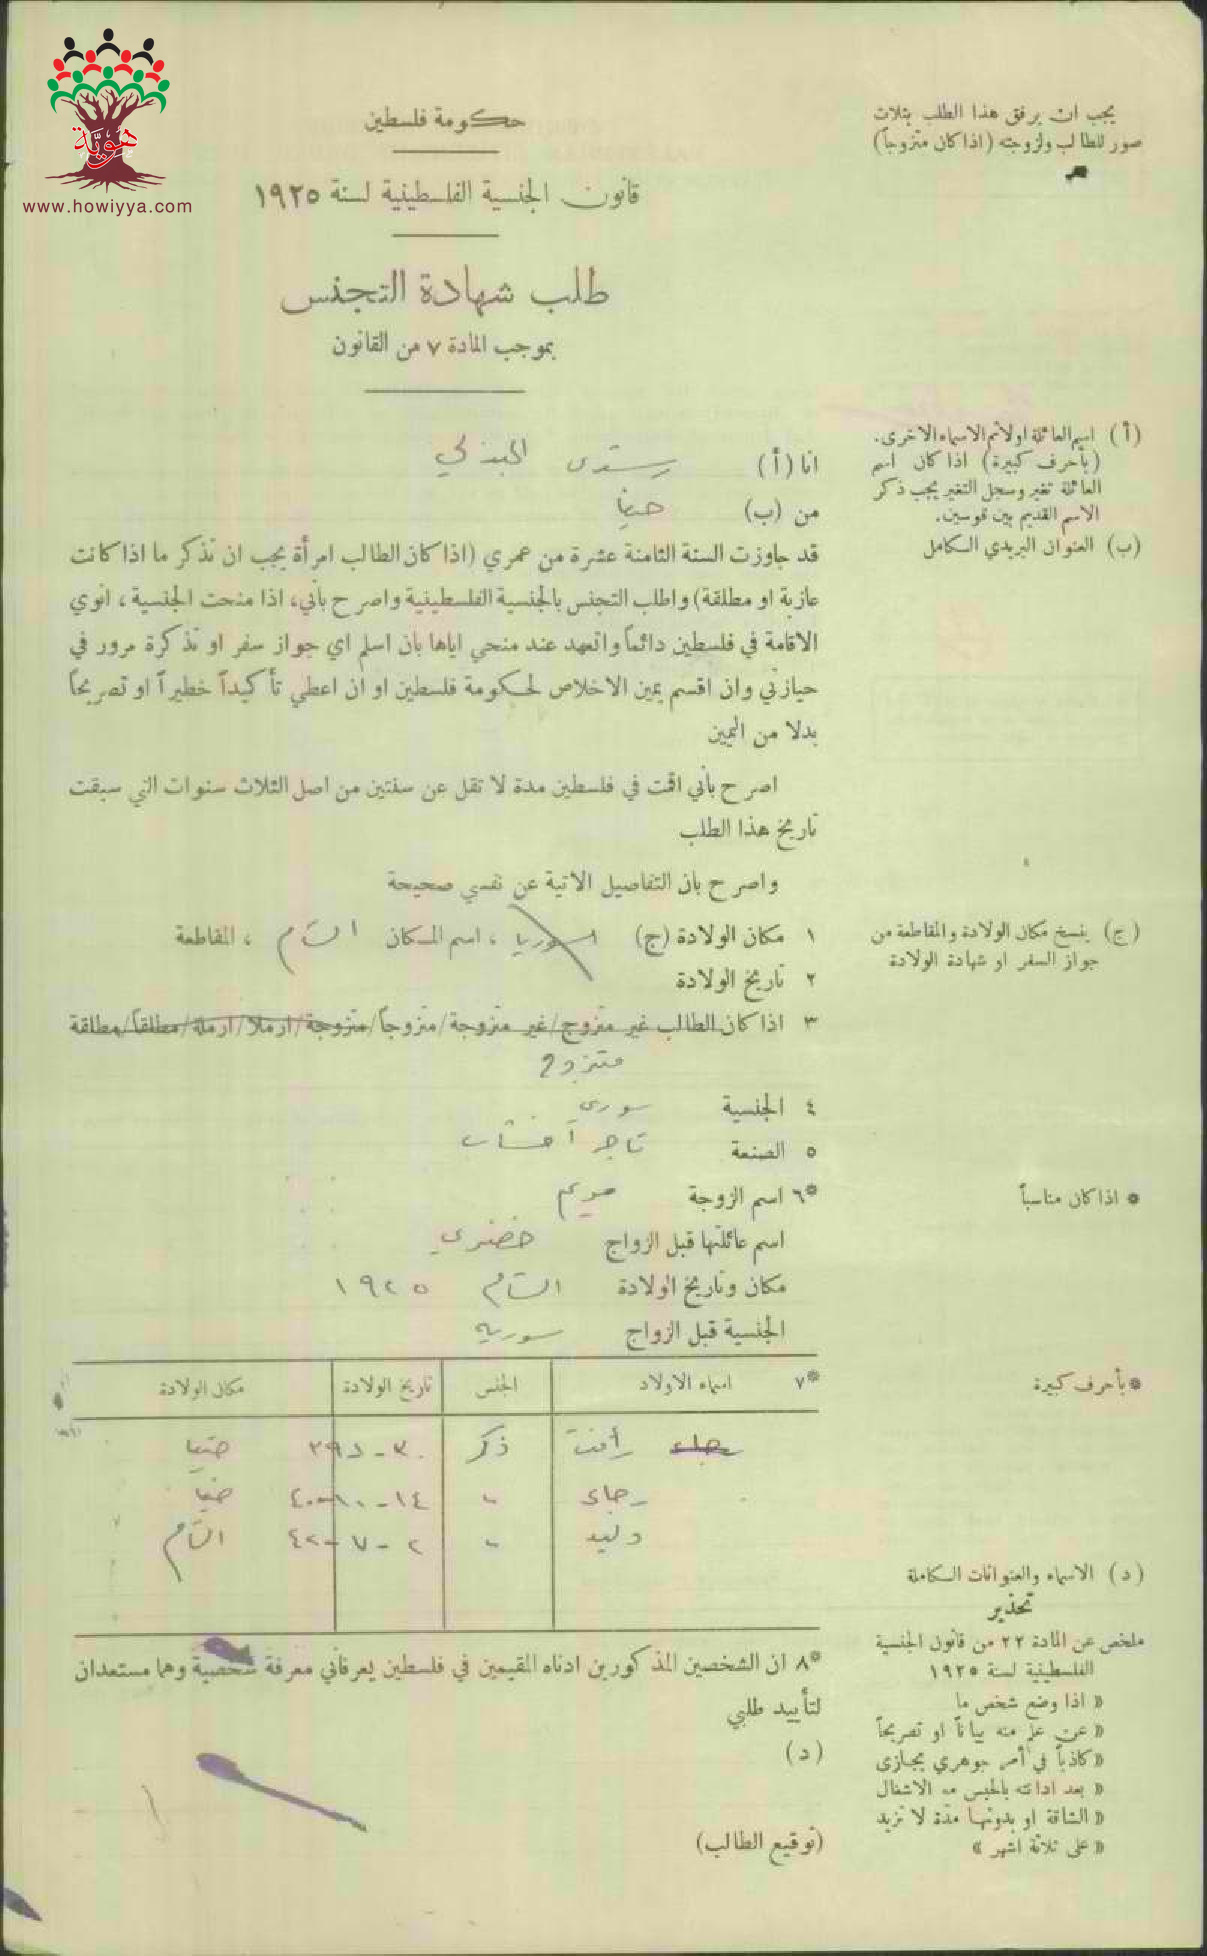 هوية
www.howiyya.com
يجب ان يرفق هذا الطلب بثلاث
صور للطالب ولزوجته (اذا كان متزوجاً)
حكومة فلسطين
قانون الجنسية الفلسطينية لسنة ١٩٢٥
طلب شهادة التجنس
بموجب المادة ٧ من القانون
(أ) اسم العائلة اولا ثم الاسماء الاخرى.
(بأحرف كبيرة) اذا كان اسم
العائلة تغير وسجل التغير يجب ذكر
الاسم القديم بين قوسين.
(ب) العنوان البريدي الكامل
انا (أ) رشدي
من (ب) حيفا
قد جاوزت السنة الثامنة عشرة من عمري (اذا كان الطالب امرأة يجب ان تذكر ما اذا كانت
عازبة او مطلقة) واطلب التجنس بالجنسية الفلسطينية واصرح بأني، اذا منحت الجنسية، انوي
الاقامة في فلسطين دائماً واتعهد عند منحي اياها بان اسلم اي جواز سفر او تذكرة مرور في
حيازتي وان اقسم يمين الاخلاص لحكومة فلسطين او ان اعطي تأكيداً خطيراً او تصريحاً
بدلا من اليمين
اصرح بأني اقمت في فلسطين مدة لا تقل عن سنتين من اصل الثلاث سنوات التي سبقت
تاريخ هذا الطلب
واصرح بان التفاصيل الاتية عن نفسي صحيحة
(ج) ينسخ مكان الولادة والمقاطعة من
جواز السفر او شهادة الولادة
١ مكان الولادة (ج) سوريا ، اسم المكان الشام ، المقاطعة
٢ تاريخ الولادة
٣ اذا كان الطالب غير متزوج/غير متزوجة/متزوجاً/متزوجة/ارملا/ارملة/مطلقاً/مطلقة
متزوج
٤ الجنسية سوري
٥ الصنعة تاجر اخشاب
* اذا كان مناسباً
*٦ اسم الزوجة مريم
اسم عائلتها قبل الزواج خضري
مكان وتاريخ الولادة الشام ١٩٢٥
الجنسية قبل الزواج سورية
* بأحرف كبيرة
*٧ اسماء الاولاد الجنس تاريخ الولادة مكان الولادة
رجاء رأفت ذكر حيفا
رجاء " ١٤-١٠-٤٠ حيفا
وليد " ٢-٧-٤٢ الشام
(د) الاسماء والعنوانات الكاملة
تحذير
ملخص عن المادة ٢٢ من قانون الجنسية
الفلسطينية لسنة ١٩٢٥
« اذا وضع شخص ما
« عن علم منه بياناً او تصريحاً
« كاذباً في أمر جوهري يجازى
« بعد ادانته بالحبس مع الاشغال
« الشاقة او بدونها مدة لا تزيد
« على ثلاثة اشهر »
*٨ ان الشخصين المذكورين ادناه المقيمين في فلسطين يعرفاني معرفة شخصية وهما مستعدان
لتأييد طلبي
(د)
(توقيع الطالب)